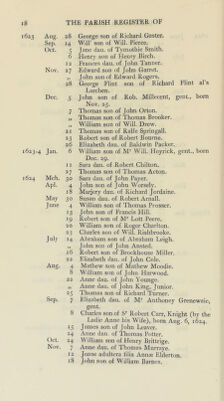 18 THE PARISH REGISTER OF
1623 Aug. 28 George son of Richard Gaster.
Sep. 14 Will' son of Will. Pierce.
Oct. 5 Jane dau. of Tymothie Smith.
6 Henry son of Henry Birch.
12 Frances dau. of John Tanner.
Nov. 27 Edward son of John Garret.
John son of Edward Rogers.
28 George Flint son of Richard Flint al's
Lurchen.
Dec. 5 John son of Rob. Millecent, gent., born
Nov. 25.
7 Thomas son of John Orton.
„ Thomas son of Thomas Bronker.
„ William son of Will. Drew.
21 Thomas son of Ralfe Springall.
25 Robert son of Robert Bourne.
26 Elizabeth dau. of Baldwin Packer.
1623-4 Jan. 6 William son of Mr Will. Hoyrick, gent., born
Dec. 29.
11 Sara dau. of Robert Chilton.
27 Thomas son of Thomas Acton.
1624 Mch. 30 Sara dau. of John Payer.
Apl. 4 John son of John Worsely.
18 Marjery dau. of Richard Jordaine.
May 30 Susan dau. of Robert Arnall.
June 4 William son of Thomas Prosser.
13 John son of Francis Hill.
19 Robert son of Mr Lott Peere.
20 William son of Roger Charlton.
23 Charles son of Will. Rishbrooke.
July 14 Abraham son of Abraham Leigh.
„ John son of John Ansted.
16 Robert son of Brockhouse Miller.
22 Elizabeth dau. of John Cole.
Aug. 4 Mathew son of Mathew Moodie.
8 William son of John Harwood.
22 Anne dau. of John Younge.
„ Anne dau. of John King, Junior.
25 Thomas son of Richard Turner.
Sep. 7 Elizabeth dau. of Mr Anthoney Greneweie,
gent.
8 Charles son of Sr Robert Carr, Knight (by the
Ladie Anne his Wife), born Aug. 6, 1624.
15 James son of John Leaver.
24 Anne dau. of Thomas Potter.
Oct. 24 William son of Henry Brittrige.
Nov. 7 Anne dau. of Thomas Murraye.
12 Jeane adultera filia Annæ Elderton.
18 John son of William Barnes.